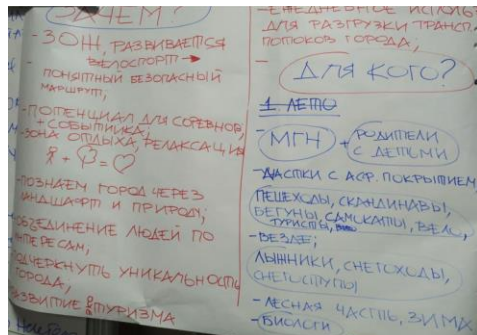 ЗАЧЕМ?
- ЗОЖ, РАЗВИВАЕТСЯ
ВЕЛОСПОРТ →
ПОНЯТНЫЙ БЕЗОПАСНЫЙ
МАРШРУТ;
- ПОТЕНЦИАЛ ДЛЯ СОРЕВНОВ,
+ СОБЫТИЙКА;
- ЗОНА ОТДЫХА, РЕЛАКСАЦИЯ
- ПОЗНАЕМ ГОРОД ЧЕРЕЗ
ЛАНДШАФТ И ПРИРОДУ;
ОБЪЕДИНЕНИЕ ЛЮДЕЙ ПО
ИНТЕРЕСАМ;
ПОДЧЕРКНУТЬ УНИКАЛЬНОСТЬ
ГОРОДА,
РАЗВИТИЕ ТУРИЗМА
- ЕЖЕДНЕВНОЕ ИСПОЛЬ
ДЛЯ РАЗГРУЗКИ ТРАНСП.
ПОТОКОВ ГОРОДА;
- ДЛЯ КОГО?
1 ЛЕТО
- МГН + РОДИТЕЛИ
С ДЕТЬМИ
- УЧАСТКИ С АСФ. ПОКРЫТИЕМ
ПЕШЕХОДЫ, СКАНДИНАВЫ,
БЕГУНЫ, САМОКАТЫ, ВЕЛО,
ТУРИСТЫ,
- ВЕЗДЕ;
ЛЫЖНИКИ, СНЕГОХОДЫ,
СНЕГОСТУПЫ
- ЛЕСНАЯ ЧАСТЬ, ЗИМА
- БИОЛОГИ